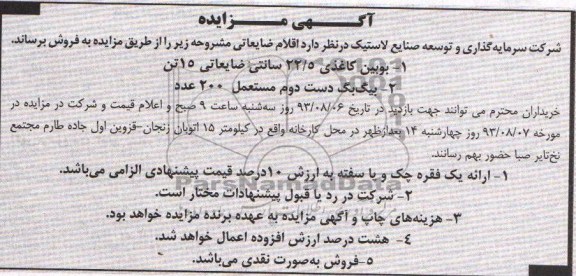 آگهی مزایده
شرکت سرمایه‌گذاری و توسعه صنایع لاستیک درنظر دارد اقلام ضایعاتی مشروحه زیر را از طریق مزایده به فروش برساند.
۱- بوبین کاغذی ۲۲/۵ سانتی ضایعاتی ۱۵تن
۲- بیگ‌بگ دست دوم مستعمل ۲۰۰ عدد
خریداران محترم می توانند جهت بازدید در تاریخ ۹۳/۰۸/۰۶ روز سه‌شنبه ساعت ۹ صبح و اعلام قیمت و شرکت در مزایده در
مورخه ۹۳/۰۸/۰۷ روز چهارشنبه ۱۴ بعدازظهر در محل کارخانه واقع در کیلومتر ۱۵ اتوبان زنجان-قزوین اول جاده طارم مجتمع
نخ‌تایر صبا حضور بهم رسانند.
۱- ارائه یک فقره چک و یا سفته به ارزش ۱۰درصد قیمت پیشنهادی الزامی می‌باشد.
۲- شرکت در رد یا قبول پیشنهادات مختار است.
۳- هزینه‌های چاپ و آگهی مزایده به عهده برنده مزایده خواهد بود.
۴- هشت درصد ارزش افزوده اعمال خواهد شد.
۵-فروش به‌صورت نقدی می‌باشد.